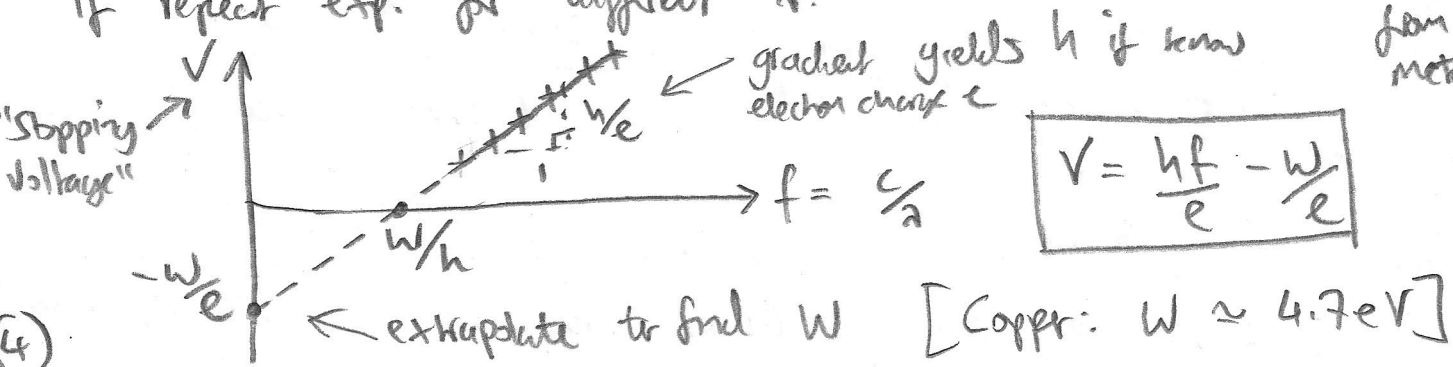 If repeat exp. for different
V
"Stopping
Voltage"
gradient yields h if know
electron charge e
from
h/e
1
f = c/λ
V = hf/e - W/e
W/h
-W/e
extrapolate to find W [Copper: W ≃ 4.7eV]
(4)